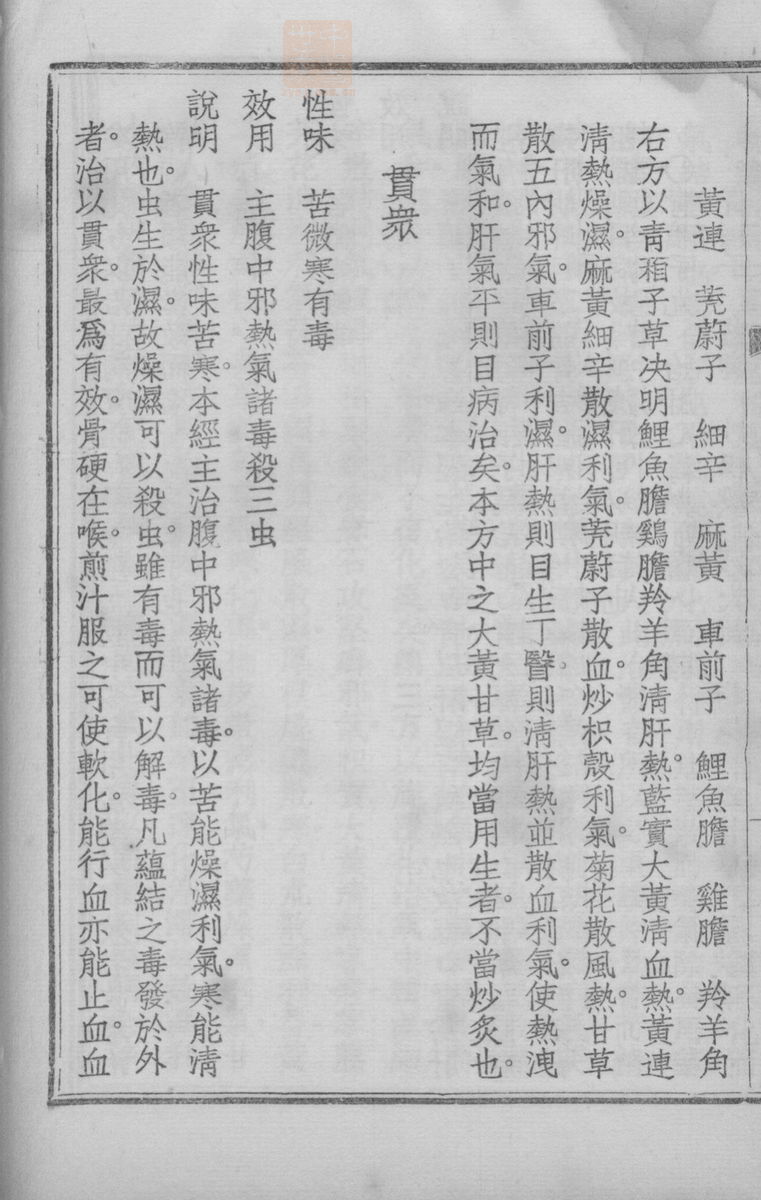 黃連　茺蔚子　細辛　麻黃　車前子　鯉魚膽　雞膽　羚羊角
右方以靑葙子草决明鯉魚膽鷄膽羚羊角淸肝熱。藍實大黃淸血熱。黃連
淸熱燥濕。麻黃細辛散濕利氣。茺蔚子散血。炒枳殼利氣。菊花散風熱。甘草
散五內邪氣。車前子利濕。肝熱則目生丁翳。則淸肝熱並散血利氣。使熱洩
而氣和。肝氣平則目病治矣。本方中之大黃甘草。均當用生者。不當炒炙也。
貫衆
性味　苦微寒有毒
效用　主腹中邪熱氣諸毒殺三虫
說明　貫衆性味苦寒。本經主治腹中邪熱氣諸毒。以苦能燥濕利氣。寒能淸
熱也。虫生於濕。故燥濕可以殺虫。雖有毒而可以解毒。凡蘊結之毒發於外
者。治以貫衆。最爲有效。骨硬在喉。煎汁服之可使軟化。能行血亦能止血。血